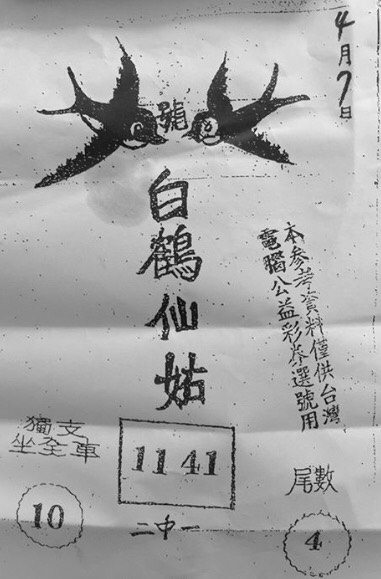 4月7日
號
白鶴仙姑
本參考資料僅供台灣
電腦公益彩券選號用
獨支
坐全車
10
11 41
二中一
尾數
4